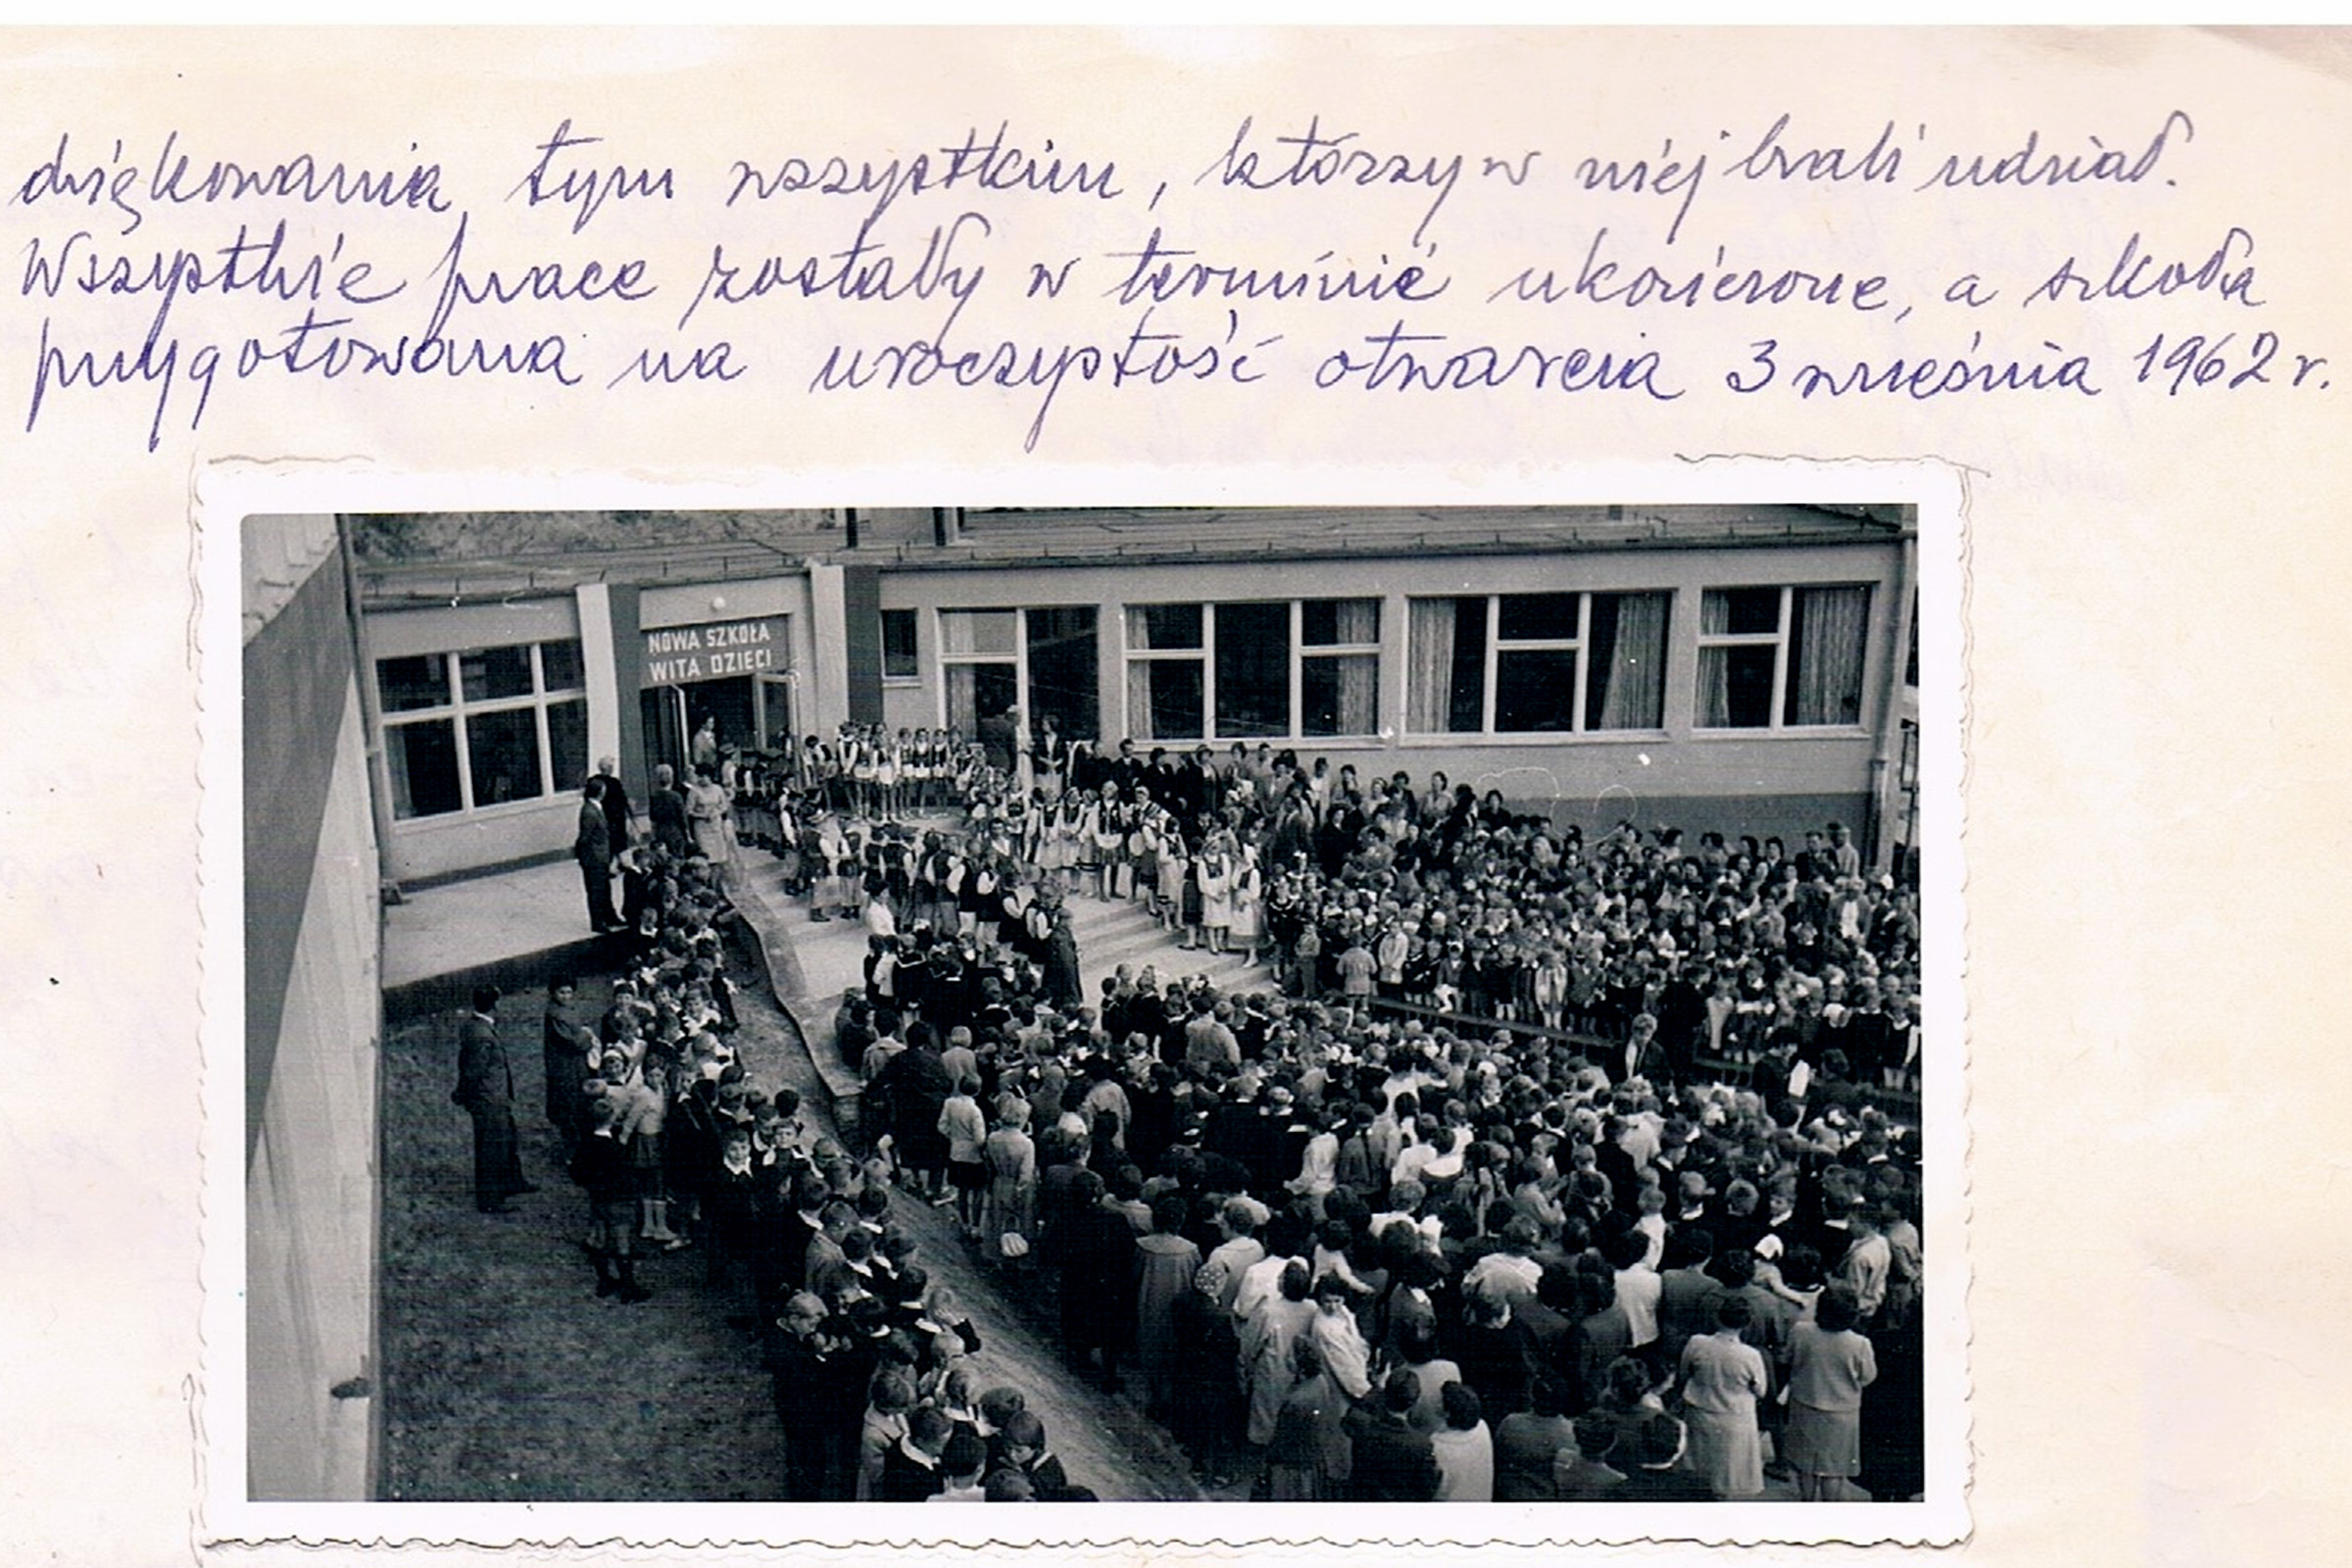 dziękowania tym wszystkim, którzy w niej brali udział.
Wszystkie prace zostały w terminie ukończone, a szkoła
przygotowana na uroczystość otwarcia 3 września 1962 r.
NOWA SZKOŁA
WITA DZIECI